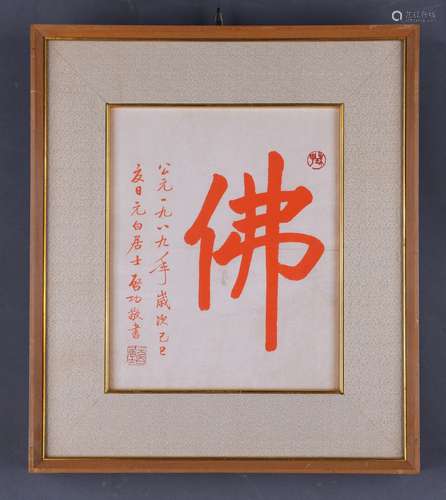 佛
公元一九八九年歲次己巳
亥日元白居士啟功敬書